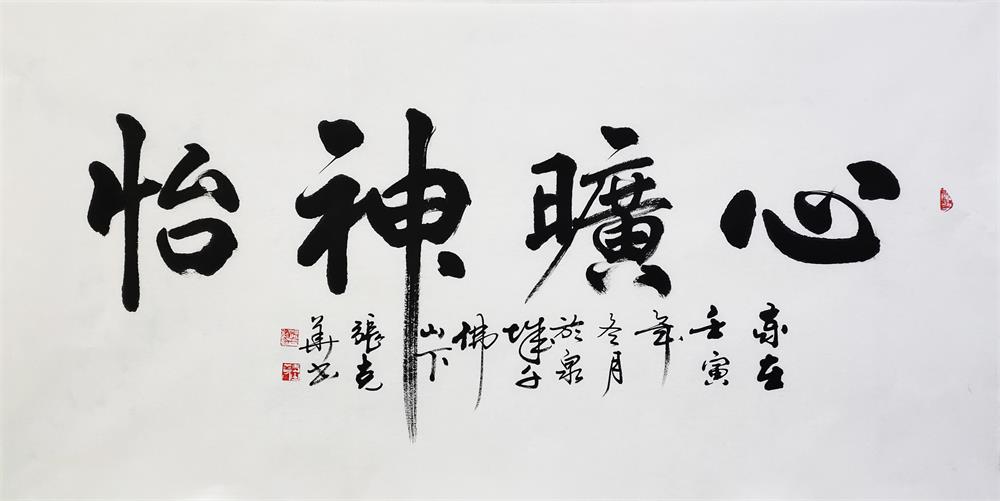 心曠神怡
歲在
壬寅
年
冬月
於泉
城千
佛
山下
張克
華書